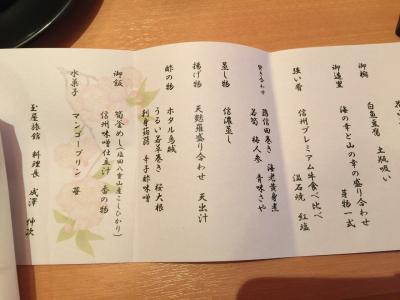 御椀
白魚豆腐 土瓶吸い
御造里
海の幸と山の幸の盛り合わせ 芽物一式
強い肴
信州プレミアム牛食べ比べ 温石焼 紅塩
炊き合わせ
蕗信田巻き 海老黄身煮
若筍 梅人参 青味さや
蒸し物
信濃蒸し
揚げ物
天麩羅盛り合わせ 天出汁
酢の物
ホタル烏賊
うるい若草巻き 桜大根
刺身蒟蒻 辛子酢味噌
御飯
筍釜めし(塩田八重山産こしひかり)
信州味噌仕立汁 香の物
水菓子
マンゴープリン 苺
玉屋旅館 料理長 成澤 伸次